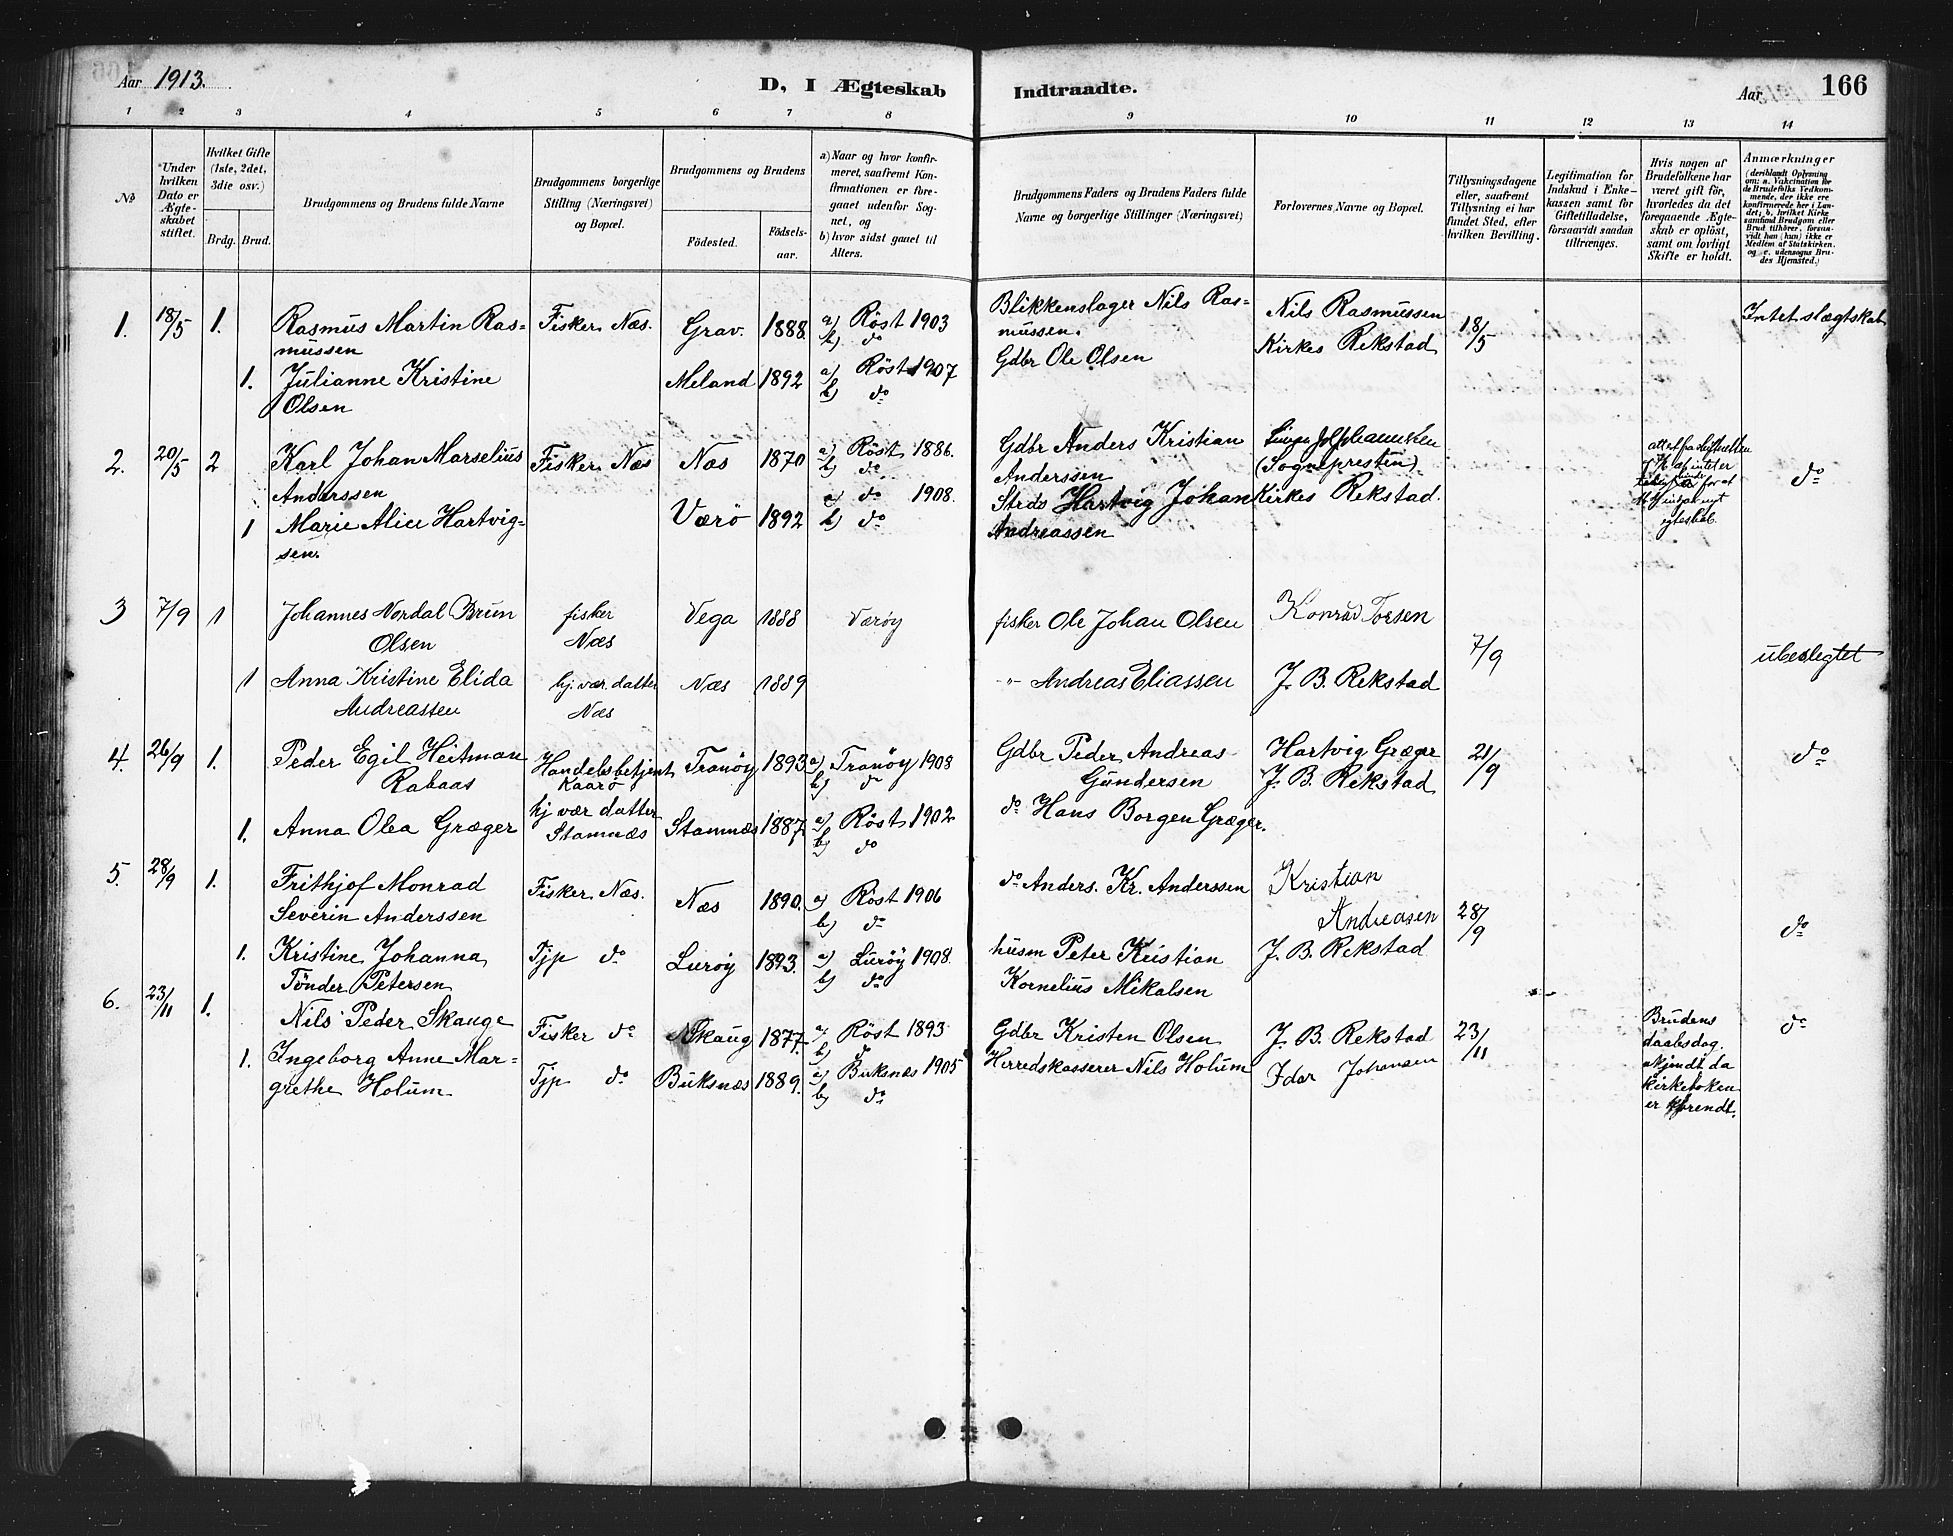 Aar 1913.
D, I Ægteskab Indtraadte.
Aar
166
1 2 3 4 5 6 7 8 9 10 11 12 13 14
No
*Under hvilken Dato er Ægteskabet stiftet.
Hvilket Gifte (1ste, 2det, 3die osv.)
Brdg. Brud.
Brudgommens og Brudens fulde Navne
Brudgommens borgerlige Stilling (Næringsvei) og Bopæl.
Brudgommens og Brudens
Födested. Födsels-aar.
a) Naar og hvor konfirmeret, saafremt Konfirmationen er foregaaet udenfor Sognet, og
b) hvor sidst gaaet til Alters.
Brudgommens Faders og Brudens Faders fulde Navne og borgerlige Stillinger (Næringsvei)
Forlovernes Navne og Bopæl.
Tillysningsdagene eller, saafremt Tillysning ei har fundet Sted, efter hvilken Bevilling.
Legitimation for Indskud i Enkekassen samt for Giftetilladelse, forsaavidt saadan tiltrænges.
Hvis nogen af Brudefolkene har været gift för, hvorledes da det foregaaende Ægteskab er oplöst, samt om lovligt Skifte er holdt.
Anmærkninger (deriblandt Oplysning om: a. Vakcination for de Brudefolks Vedkommende, der ikke ere konfirmerede her i Landet; b. hvilket Kirkesamfund Brudgom eller Brud tilhörer, forsaavidt han (hun) ikke er Medlem af Statskirken, og c. udensogns Brudes Hjemsted.)
1. 18/5 1. Rasmus Martin Rasmussen Fisker Næs. Grav. 1888. a) Röst 1903 b) do Blikkenslager Nils Rasmussen. Nils Rasmussen 18/5 Intet slægtskab
1. Julianne Kristine Olsen Meland 1892 a) Röst 1907 b) do Gdbr Ole Olsen Kirkes Rekstad
2. 20/5 2 Karl Johan Marselius Anderssen Fisker Næs Næs 1870 a) Röst 1886. b) do Gdbr Anders Kristian Anderssen (Sognepresten). do
1 Marie Alice Hartvigsen. Værö 1892 a) do 1908. b) do Strds Hartvig Johan Andreassen Kirkes Rekstad.
3 7/9 1 Johannes Nordal Brun Olsen fisker Næs Vega 1888 Værøy fisker Ole Johan Olsen Konrad Torsen 7/9 ubeslegtet
1 Anna Kristine Elida Andreassen hj. vær. datter Næs Næs 1889 -"- Andreas Eliassen J. B. Rekstad
4. 26/9 1. Peder Egil Heitman Rabaas Handelsbetjent Kaarö Tranöy 1893 a) Tranöy 1908 b) do Gdbr Peder Andreas Gundersen Hartvig Græger J. B. Rekstad 21/9 do
1. Anna Olea Græger hj vær datter Stamnæs Stamnæs 1887 a) Röst 1902 b) do do Hans Borgen Græger.
5. 28/9 1. Frithjof Monrad Severin Anderssen Fisker Næs. Næs 1890. a) Röst 1906 b) do do Anders. Kr. Anderssen Kristian Andreasen 28/9 do
1. Kristine Johanna Tönder Petersen Tjp do Luröy 1893. a) Luröy 1908 b) do husm Peter Kristian Kornelius Mikalsen J. B. Rekstad
6. 23/11 1. Nils Peder Skauge Fisker do Skaug 1877. a) Röst 1893 b) do Gdbr Kristen Olsen J. B. Rekstad 23/11 Brudens daabsdag ukjendt da kirkeboken er opbrendt. do
1. Ingeborg Anne Margrethe Holum Tjp do Buksnæs 1889. a) Buksnæs 1905 b) do Herredskasserer Nils Holum Idar Johansen